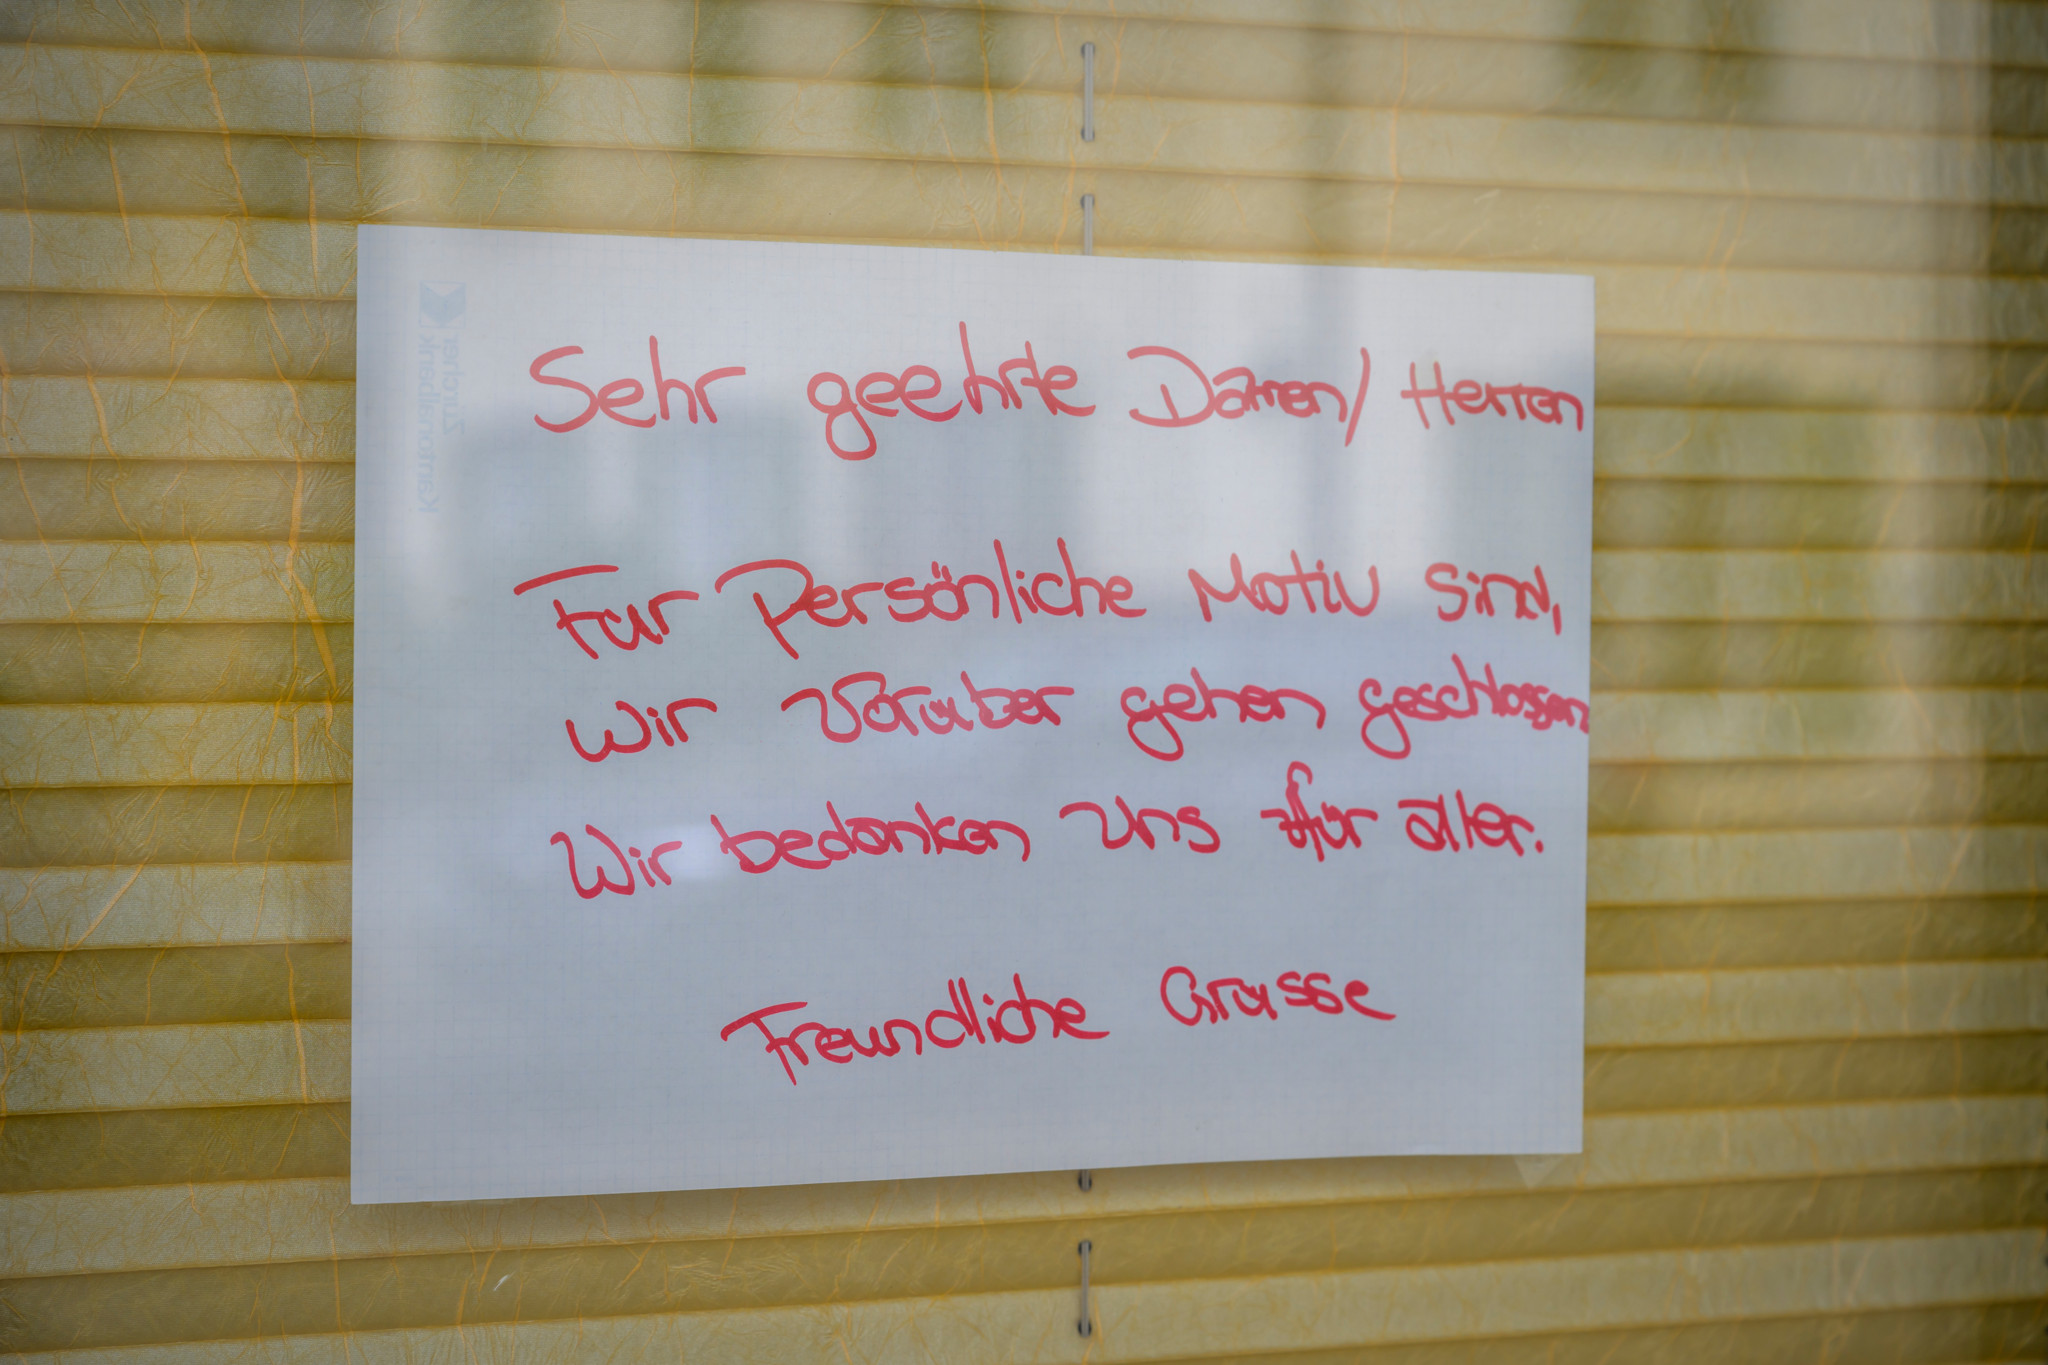 Sehr geehrte Damen/ Herren
Fur Persönliche Motiv sind,
wir Voruber gehen geschlossen
Wir bedanken uns für aller.
Freundliche Grusse
Zürcher
Kantonalbank